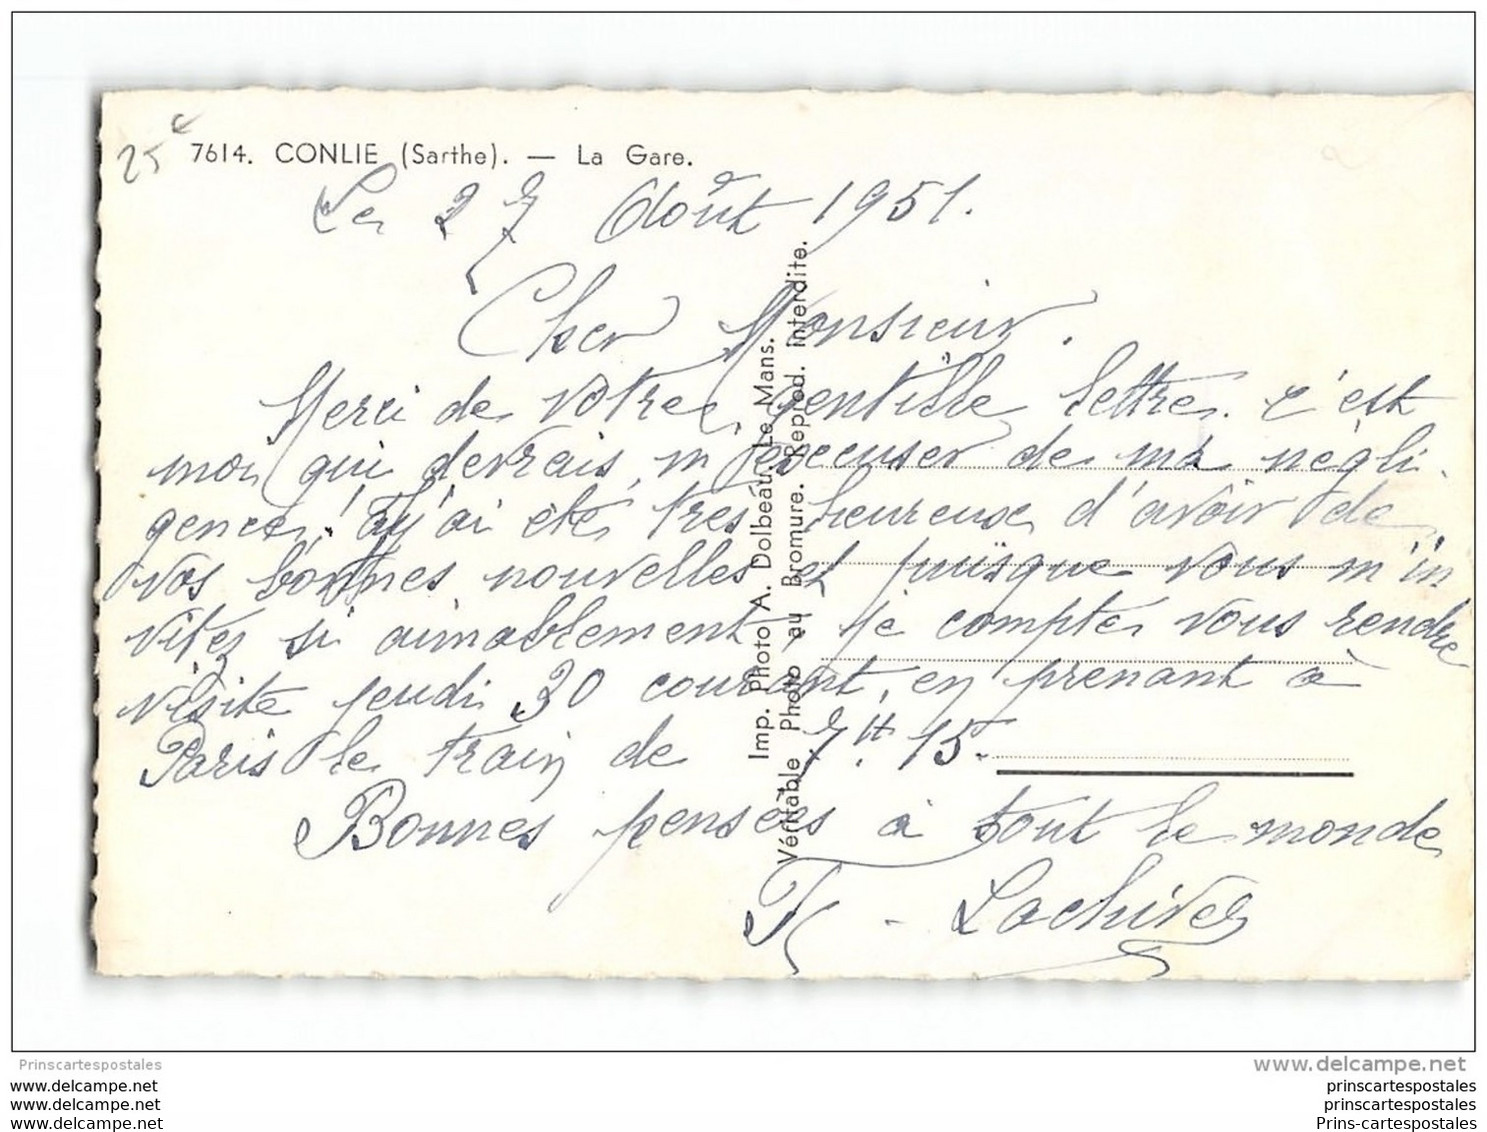 25 c
7614. CONLIE (Sarthe). — La Gare.
Le 27 Août 1951.
Cher Monsieur.
Merci de votre gentille lettre. c'est
moi qui devrais m'execuser de ma négli-
gence! J'ai été très heureuse d'avoir de
vos bonnes nouvelles et puisque vous m'in
vitez si aimablement, je compte vous rendre
visite jeudi 30 courant, en prenant à
Paris le train de 7H.15.
Bonnes pensées à tout le monde
Lachivez
Imp. Photo A. Dolbeau, Le Mans.
Véritable Photo au Bromure. Reprod. interdite.
Prinscartespostales
www.delcampe.net
www.delcampe.net
www.delcampe.net
www.delcampe.net
prinscartespostales
prinscartespostales
Prins-cartespostales